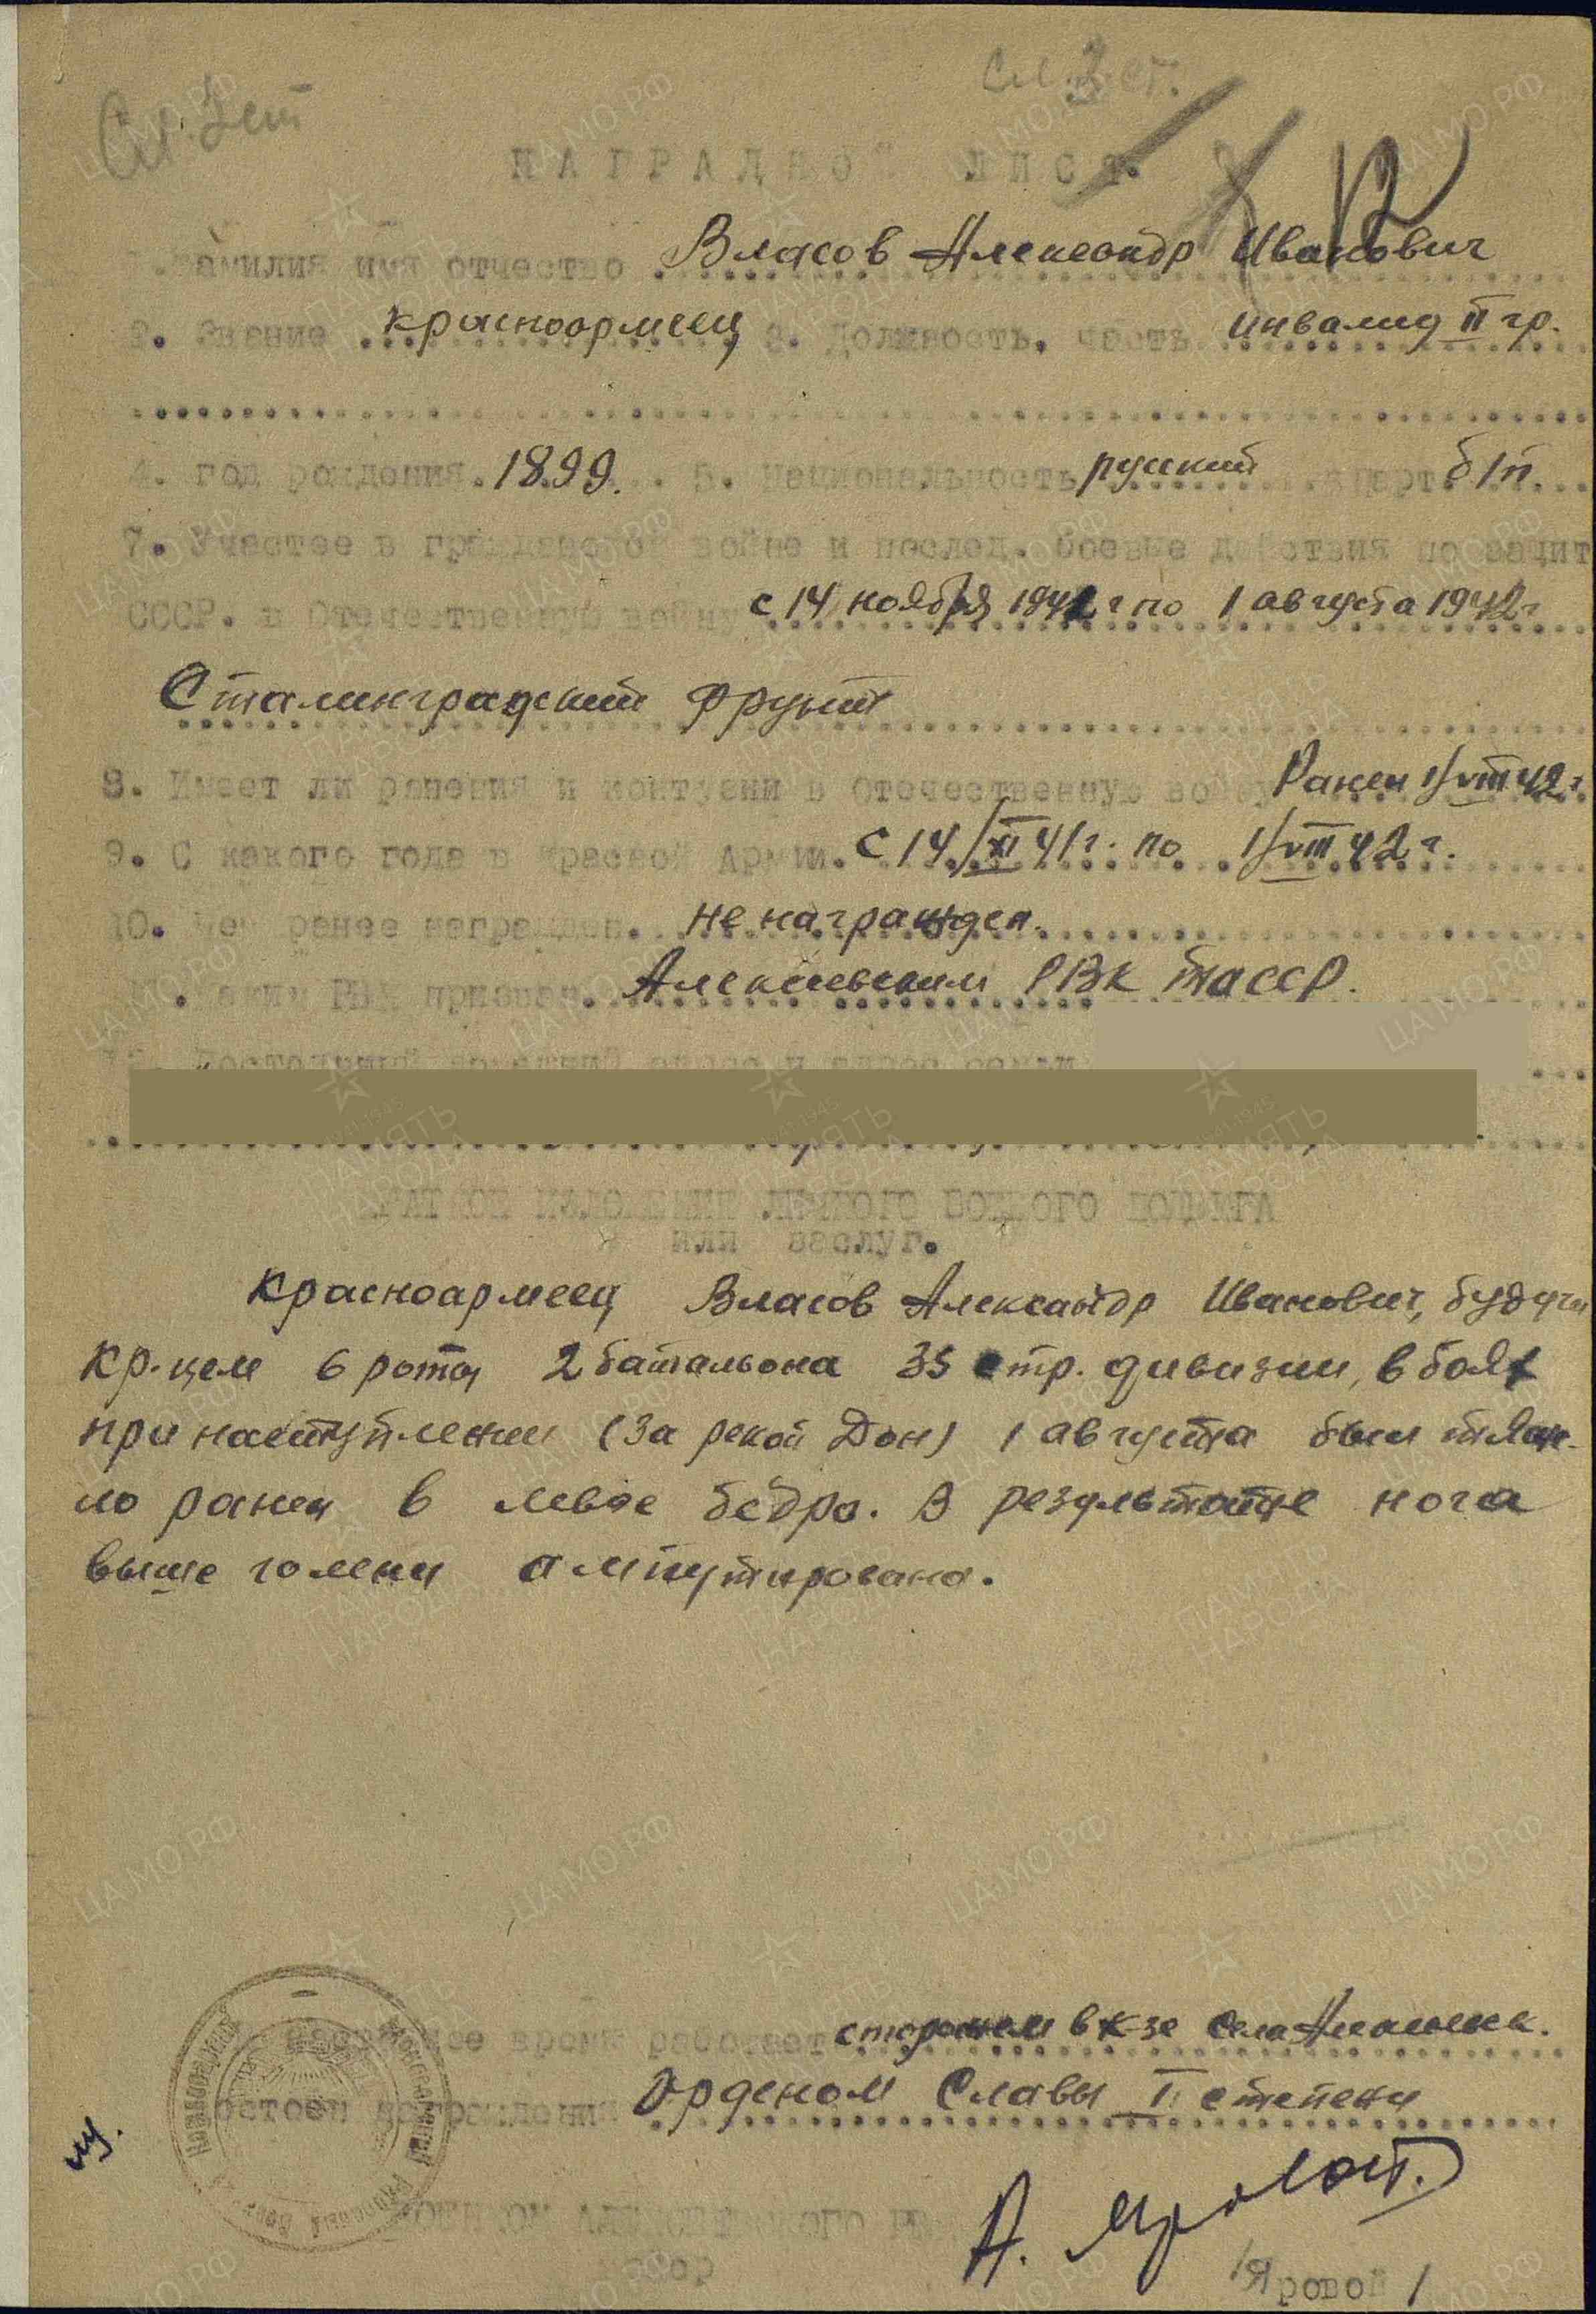 Сл. 3 ст.
Сл. 3 ст
НАГРАДНОЙ ЛИСТ.
12
1. Фамилия имя отчество Власов Александр Иванович
2. Звание красноармеец 3. Должность, часть инвалид II гр.
4. год рождения 1899. 5. Национальность русский 6. Парт. б/п.
7. Участее в гражданской войне и послед. боевые действия по защит
СССР. в Отечественную войну с 14 ноября 1941 г по 1 августа 1942 г
Сталинградский фронт
8. Имеет ли ранения и контузии в Отечественную войну Ранен 1/VIII 42 г.
9. С какого года в Красной Армии. с 14/XI 41 г. по 1/VIII 42 г.
10. Чем ранее награжден. не награжден.
11. Каким РВК призван. Алексеевским РВК ТАССР.
12. Постоянный домашний адрес и адрес семьи
КРАТКОЕ ИЗЛОЖЕНИЕ ЛИЧНОГО БОЕВОГО ПОДВИГА
или заслуг.
Красноармеец Власов Александр Иванович, будучи
кр-цем 6 роты 2 батальона 35 стр. дивизии, в боях
при наступлении (за рекой Дон) 1 августа был тяже-
ло ранен в левое бедро. В результате нога
выше голени ампутирована.
В настоящее время работает сторожем в к-зе села
Достоин награждения Орденом Славы II степени
ВОЕНКОМ АЛЕКСЕЕВСКОГО РВК
майор
/Яровой/